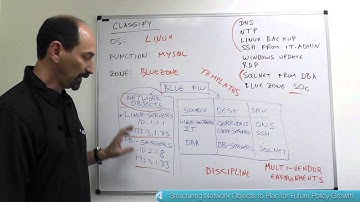 CLASSIFY
OS: LINUX
FUNCTION: MYSQL
ZONE: BLUEZONE
TEMPLATES
DNS
NTP
LINUX BACKUP
SSH FROM IT-ADMIN
WINDOWS UPDATE
RDP
SQLNET FROM DBA
BLUE ZONE SOC
BLUE FW
NETWORK
OBJECTS
LINUX-SERVERS
10.1.1.7
172.3.1.33
DB-SERVERS
10.2.1.8
172.3.1.33
SOURCE DEST SRV
LINUX-SERVERS CORP-DNS DNS
IT LINUX-SERVERS SSH
DBA DB-SERVERS SQLNET
DISCIPLINE
MULTI-VENDOR
ENVIRONMENTS
Structuring Network Objects to Plan for Future Policy Growth